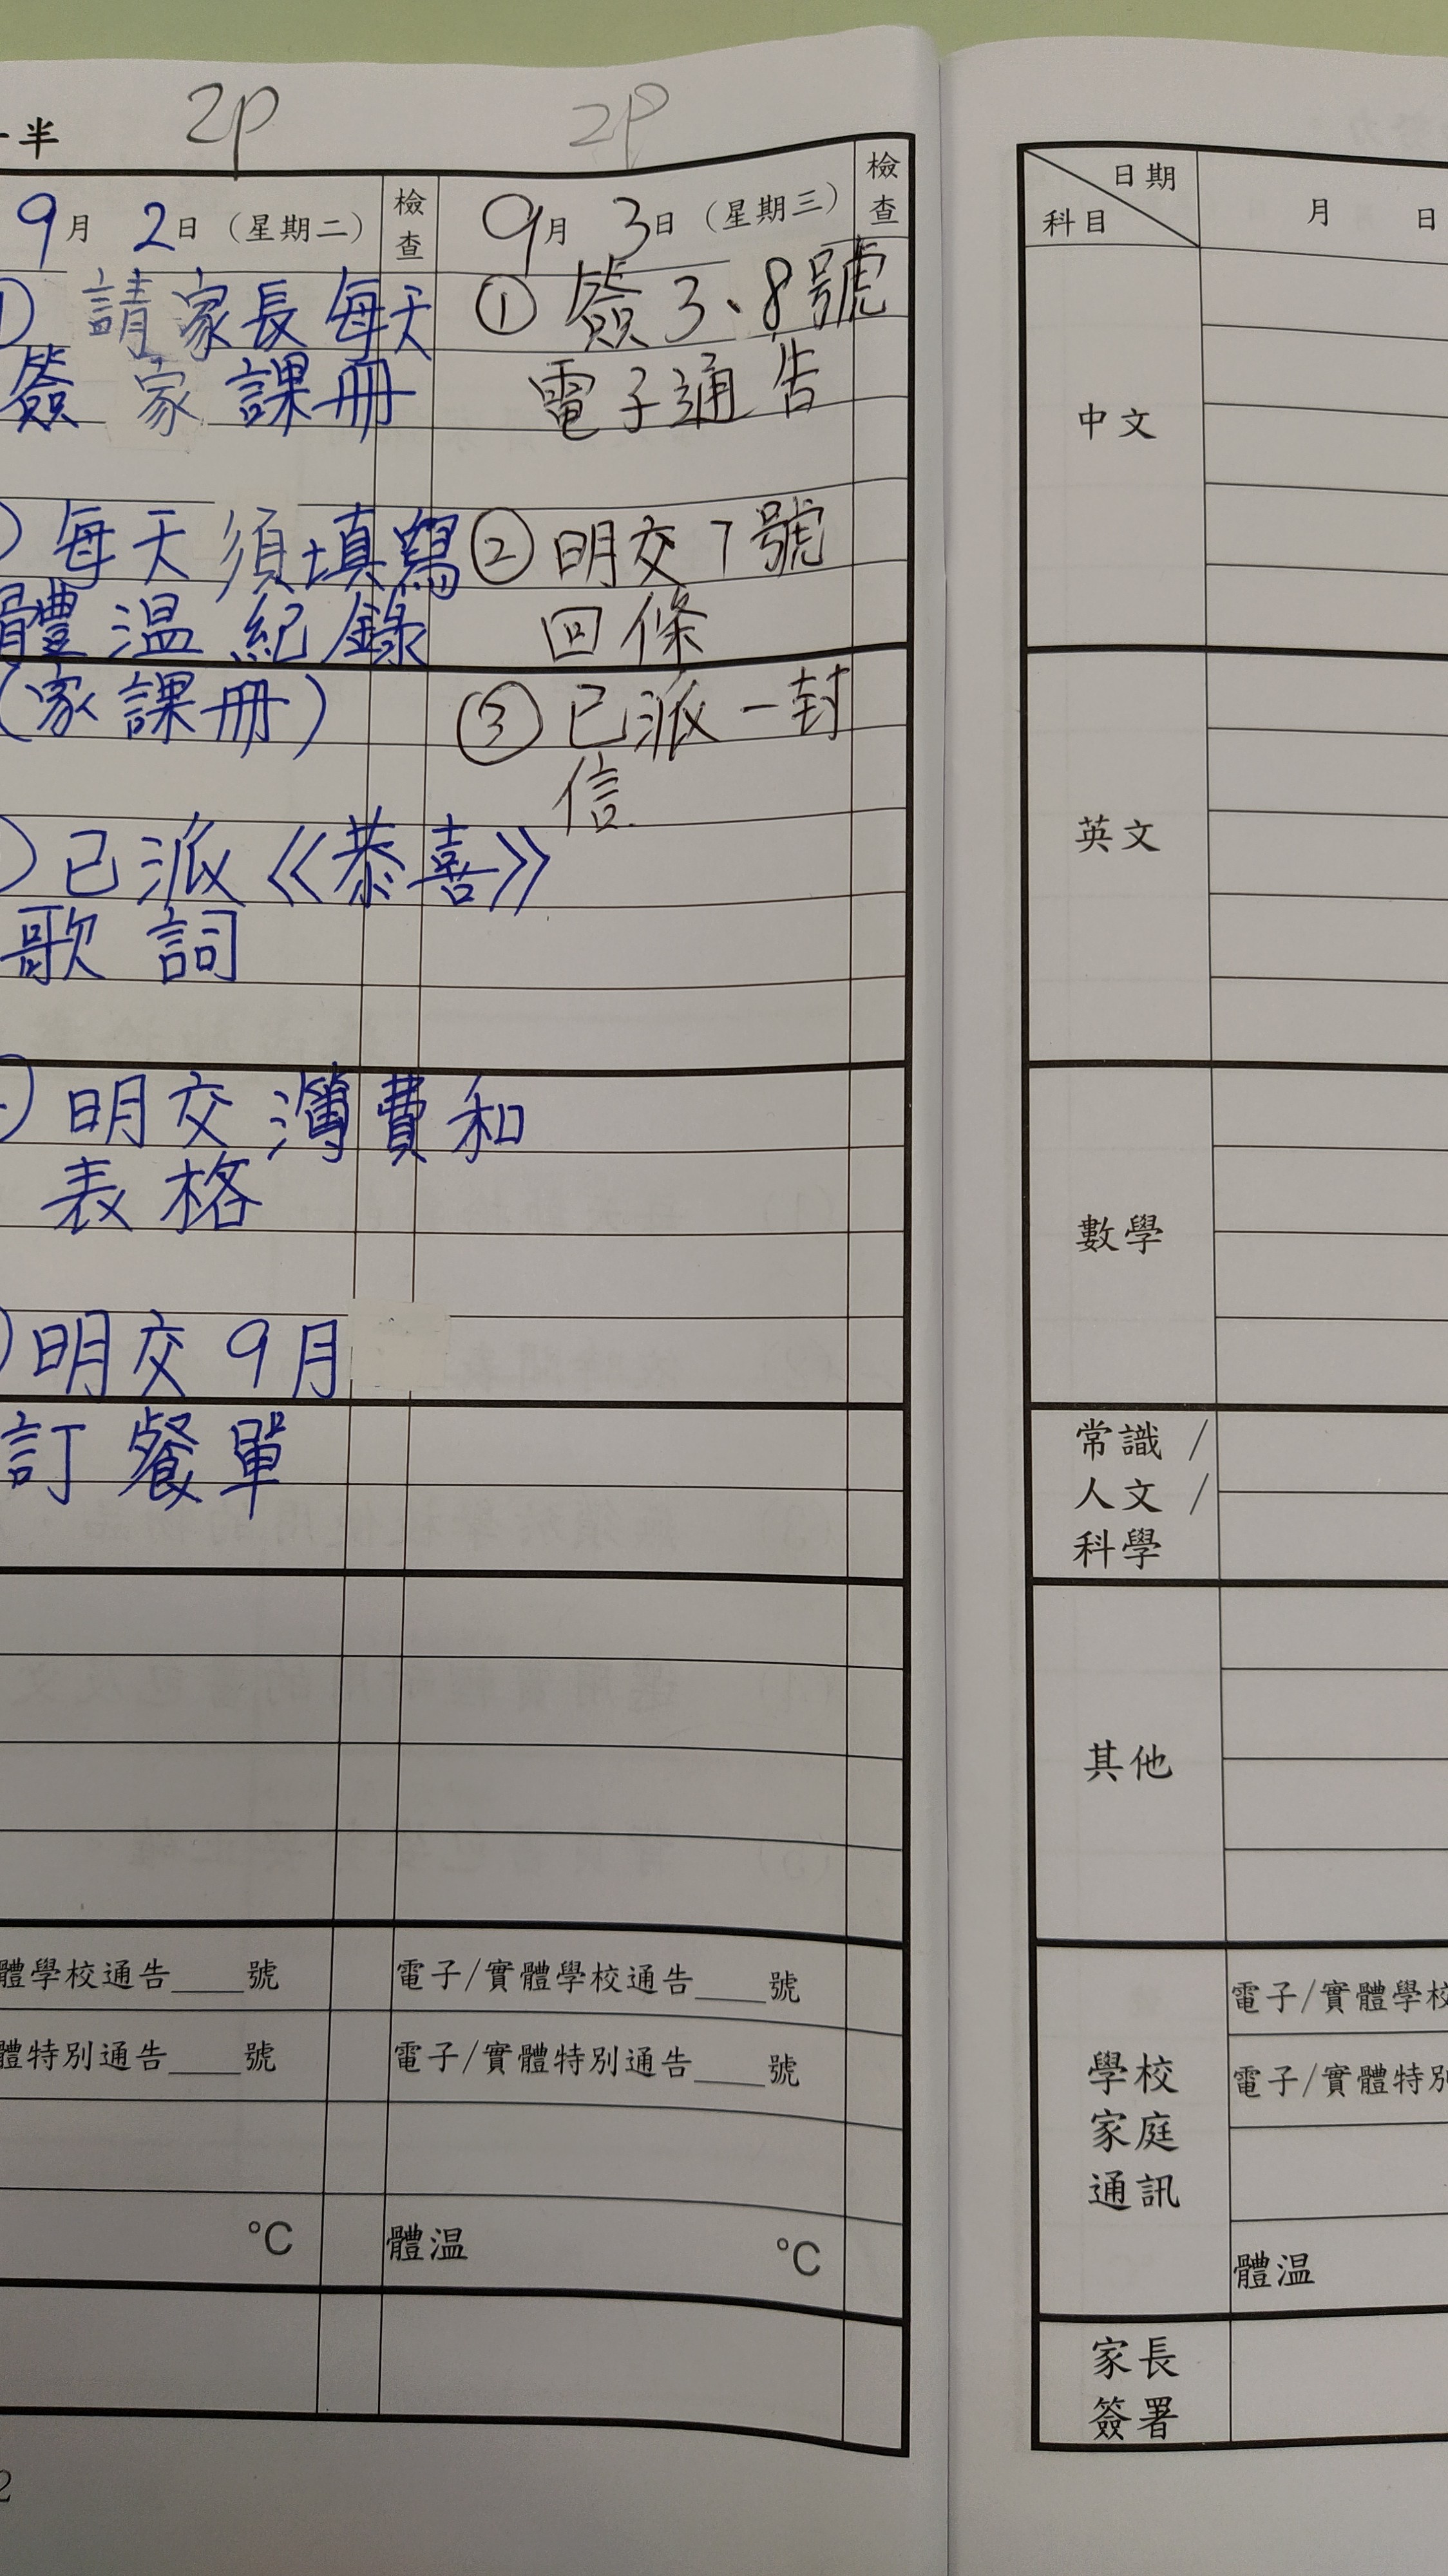 2P
2P
半
9月 2日（星期二）
檢查
9月 3日（星期三）
檢查
請家長每天
簽家課冊
每天須填寫
體溫紀錄
（家課冊）
已派《恭喜》
歌詞
明交簿費和
表格
明交9月
訂餐單
① 簽3、8號
電子通告
② 明交7號
回條
③ 已派一封
信
體學校通告____號
體特別通告____號
°C
電子/實體學校通告____號
電子/實體特別通告____號
體温 °C
2
日期
科目
月 日
中文
英文
數學
常識/
人文/
科學
其他
學校
家庭
通訊
電子/實體學校
電子/實體特別
體温
家長
簽署